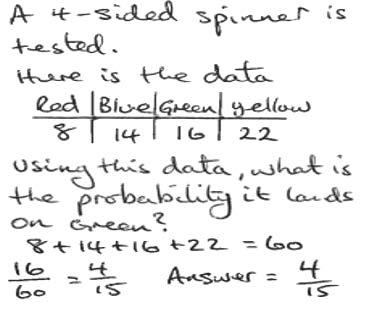 A 4-sided spinner is
tested.
Here is the data
Red | Blue | Green | yellow
8 | 14 | 16 | 22
using this data, what is
the probability it lands
on Green?
8 + 14 + 16 + 22 = 60
16/60 = 4/15 Answer = 4/15